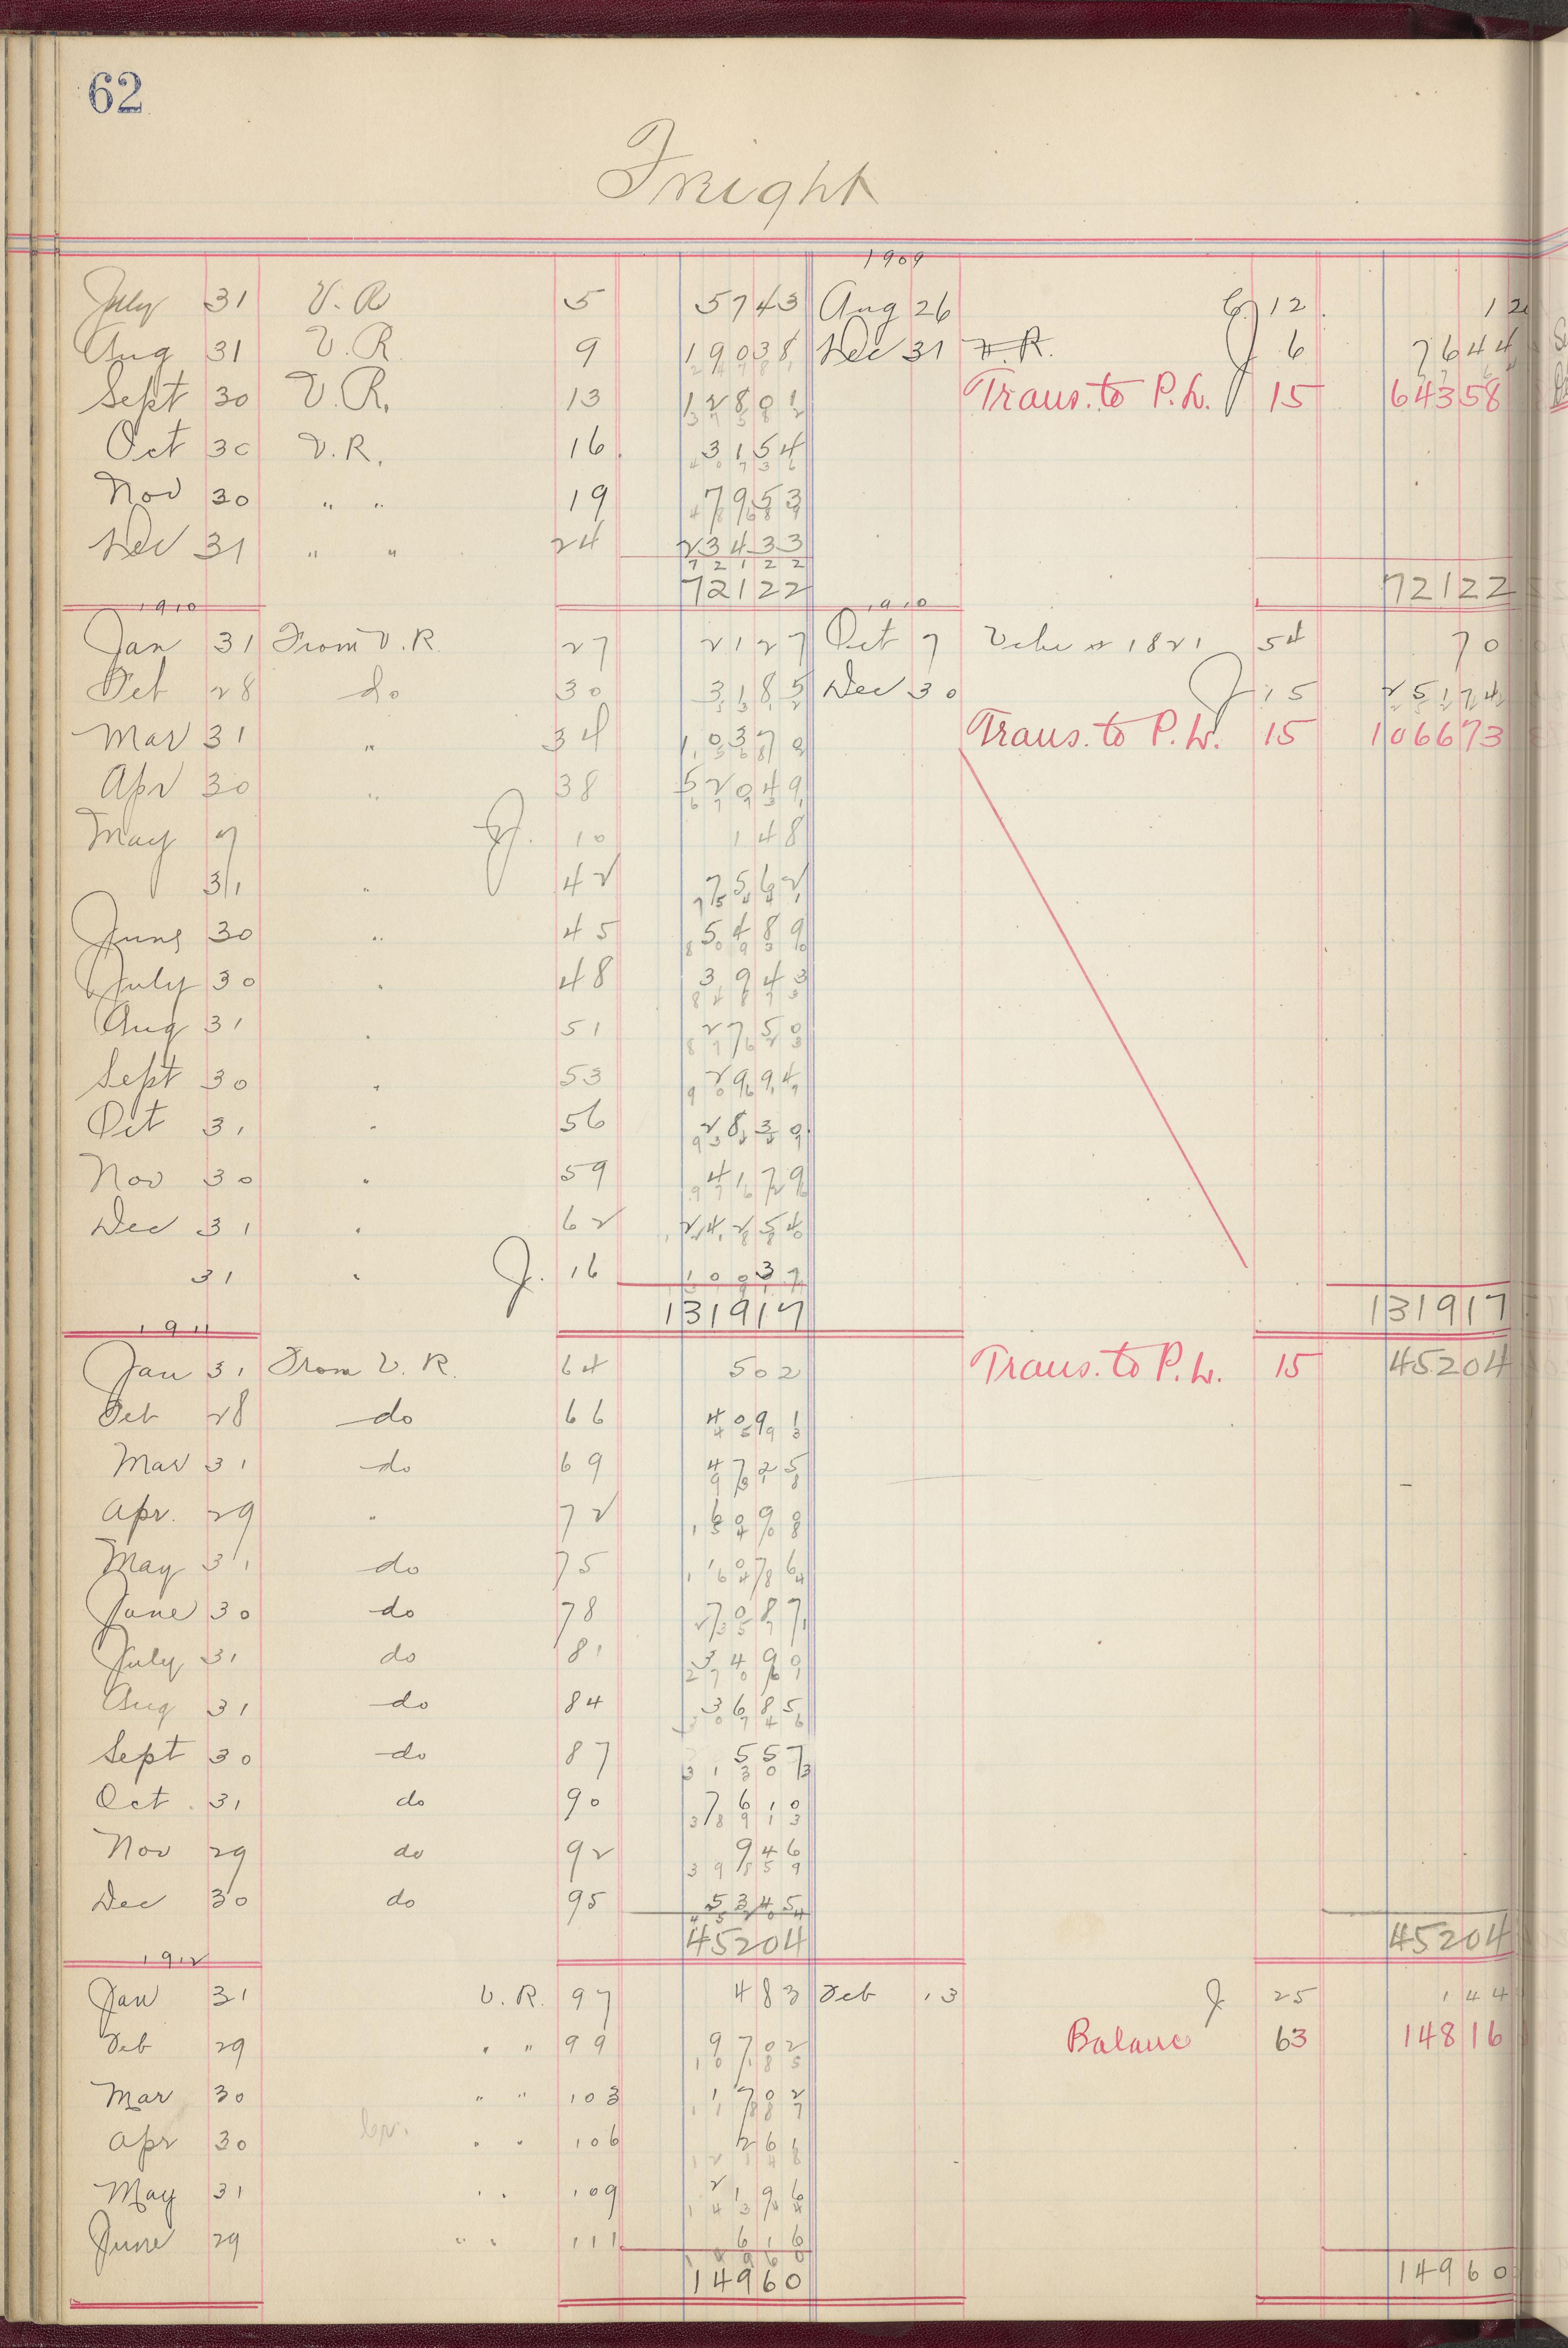 62
Freight
1909
July 31 V. R 5 5743 Aug 26 C 12 120
Aug 31 V. R. 9 19038 Dec 31 F. R. J 6 7644
Sept 30 V. R. 13 12801 Trans. to P. L. 15 64358
Oct 30 V. R. 16 3154
Nov 30 " " 19 7953
Dec 31 " " 24 23433
72122 72122
1910 1910
Jan 31 From V. R. 27 2127 Oct 7 1821 54 70
Feb 28 do 30 3185 Dec 30 J 15 25174
Mar 31 " 34 10379 Trans. to P. L. 15 106673
Apr 30 " 38 52049
May 7 J. 10 148
31 " 42 7562
June 30 " 45 5489
July 30 " 48 3943
Aug 31 " 51 2750
Sept 30 " 53 2994
Oct 31 " 56 2832
Nov 30 " 59 4179
Dec 31 " 62 24254
31 " J. 16 10037
131917 131917
1911
Jan 31 From V. R. 64 502 Trans. to P. L. 15 45204
Feb 28 do 66 4091
Mar 31 do 69 4725
Apr. 29 " 72 6090
May 31 do 75 1076
June 30 do 78 7087
July 31 do 81 3490
Aug 31 do 84 3685
Sept 30 do 87 557
Oct. 31 do 90 7610
Nov 29 do 92 946
Dec 30 do 95 5345
45204 45204
1912
Jan 31 V. R. 97 483 Feb 13 J 25 144
Feb 29 " " 99 9702 Balance 63 14816
Mar 30 " " 103 1702
Apr 30 " " 106 261
May 31 " " 109 2196
June 29 " " 111 616
14960 14960